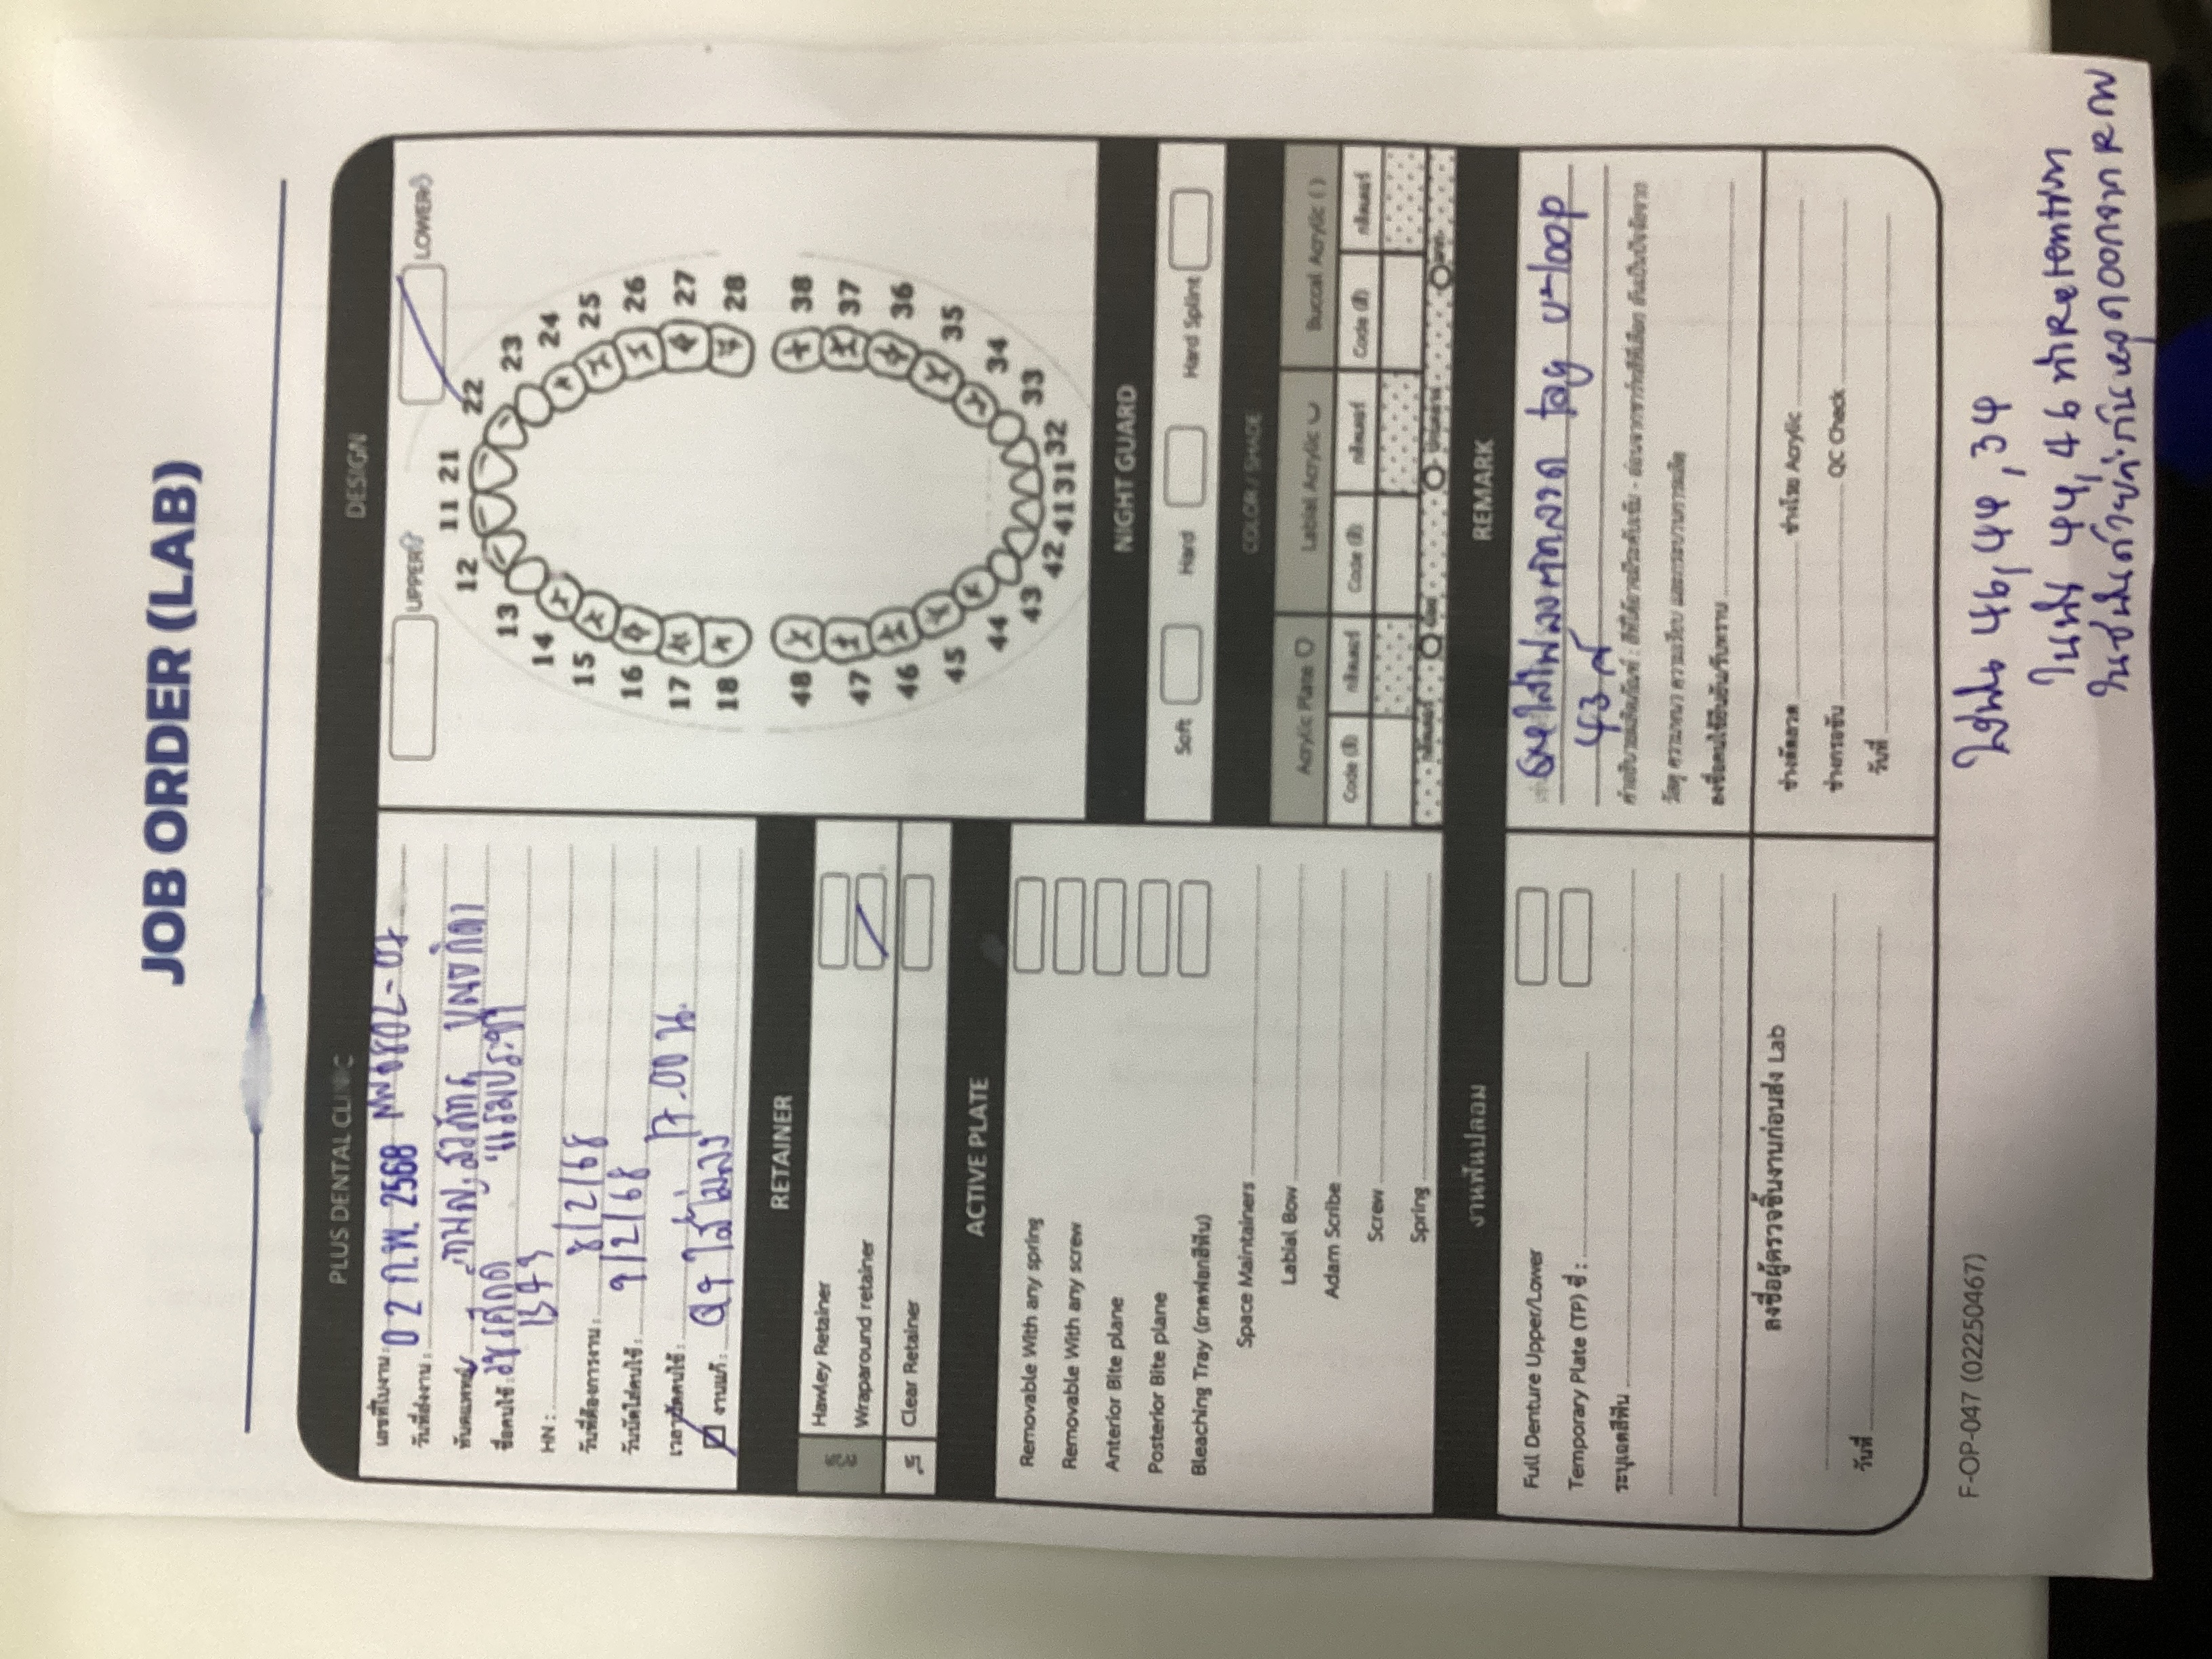 JOB ORDER (LAB)
PLUS DENTAL CLINIC
เลขที่ใบงาน : 6802-07
วันที่ส่งงาน : 02 ก.พ. 2568
ทันตแพทย์ ทพญ.
ชื่อคนไข้ :
HN : 1373
วันที่ต้องการงาน : 8/2/68
วันนัดใส่คนไข้ : 9/2/68
เวลานัดคนไข้ : 17.00 น.
งานแก้ : ใส่ไม่ลง
RETAINER
ลวด
Hawley Retainer
Wraparound retainer
ใส
Clear Retainer
ACTIVE PLATE
Removable With any spring
Removable With any screw
Anterior Bite plane
Posterior Bite plane
Bleaching Tray (ถาดฟอกสีฟัน)
Space Maintainers
Labial Bow
Adam Scribe
Screw
Spring
งานฟันปลอม
Full Denture Upper/Lower
Temporary Plate (TP) ซี่ :
ระบุเฉดสีฟัน
ลงชื่อผู้ตรวจชิ้นงานก่อนส่ง Lab
วันที่
DESIGN
UPPER LOWER
11 21
12 22
13 23
14 24
15 25
16 26
17 27
18 28
48 38
47 37
46 36
45 35
44 34
43 33
42 41 31 32
NIGHT GUARD
Soft Hard Hard Splint
COLOR / SHADE
Acrylic Plane Labial Acrylic Buccal Acrylic ( )
Code (สี) กลิตเตอร์ Code (สี) กลิตเตอร์ Code (สี) กลิตเตอร์
กลิตเตอร์ น้อย ปานกลาง มาก
REMARK
tag u-loop
43
คำอธิบายผลิตภัณฑ์ : สีที่ได้อาจมีระดับเข้ม - อ่อนจากชาร์ทสีที่เลือก อันเป็นปัจจัยจาก
วัสดุ ความหนา ความเรียบ และกระบวนการผลิต
ลงชื่อคนไข้ยืนยัน/รับทราบ
ช่างดัดลวด ช่างโรย Acrylic
ช่างกรอขัด QC Check
วันที่
F-OP-047 (02250467)
ใส่ฟัน 46, 44, 34
ในฟัน 44, 46 ทำ Retention
ในซี่ฟันด้วยค่ะกันหลุดออกจาก